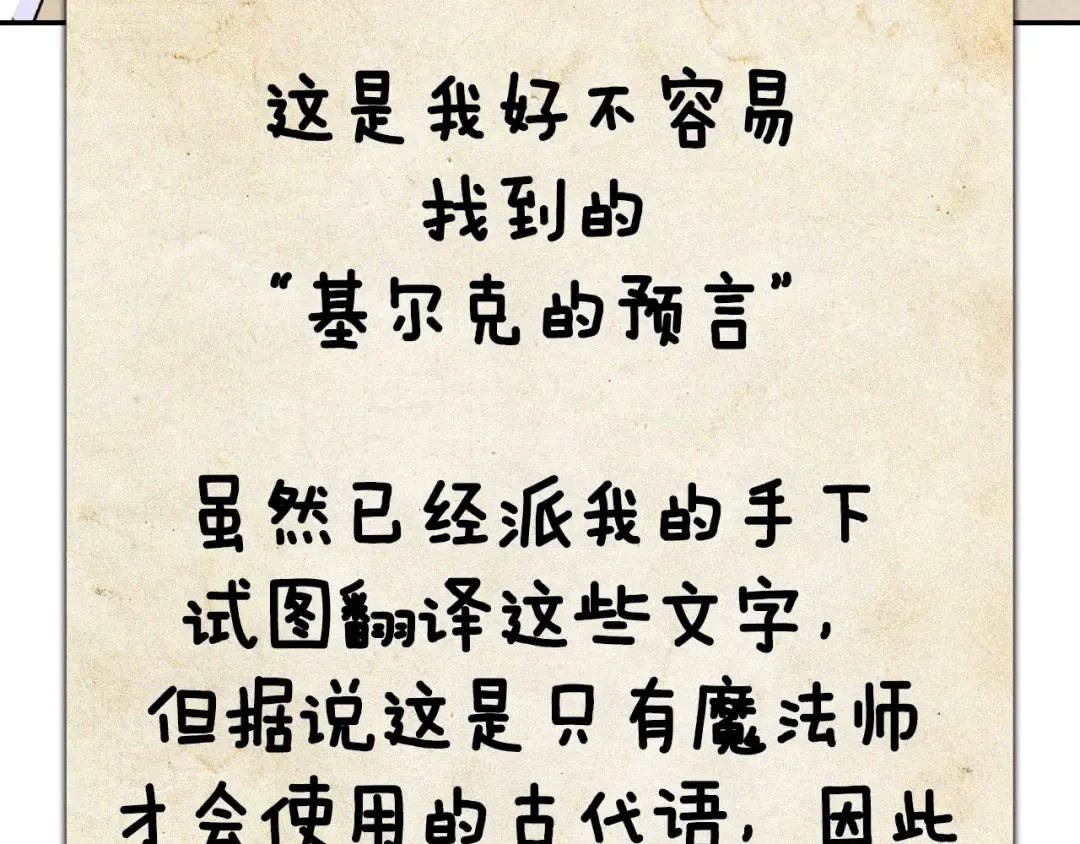 这是我好不容易
找到的
“基尔克的预言”
虽然已经派我的手下
试图翻译这些文字，
但据说这是只有魔法师
才会使用的古代语，因此